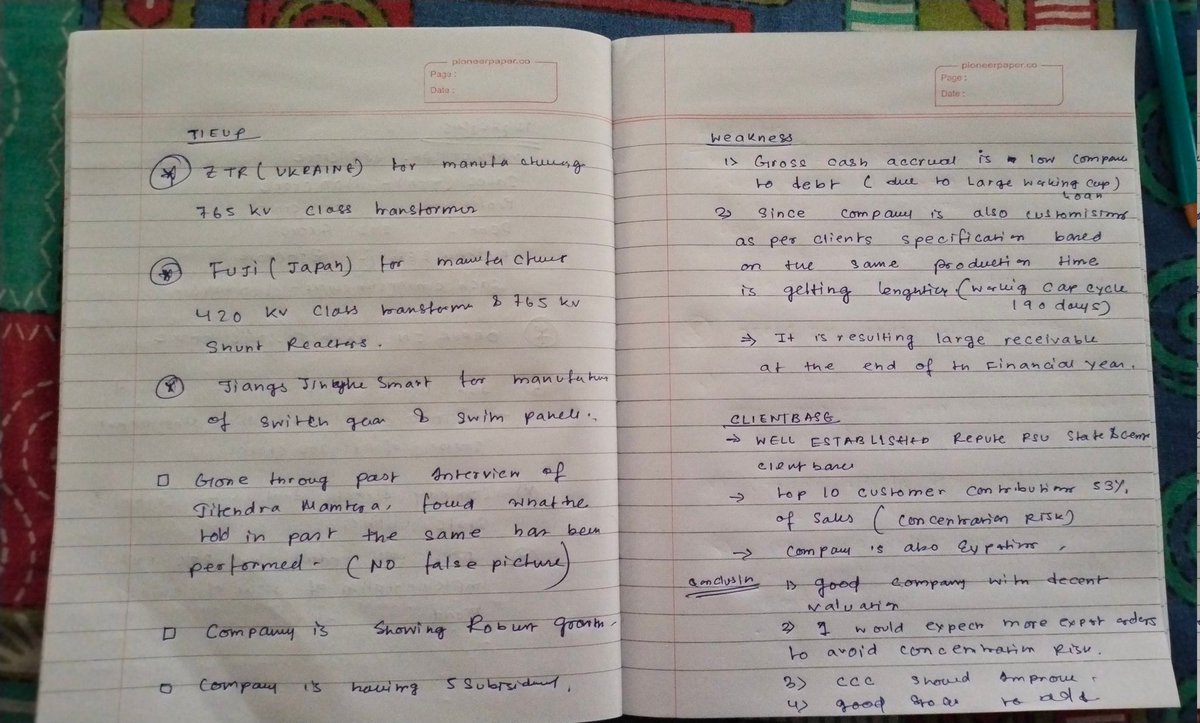 pioneerpaper.co
Page :
Date :
TIEUP
ZTR (UKRAINE) for manufacturing
765 kv class transformer
FUJI (Japan) for manufacture
420 kv class transforme & 765 kv
Shunt Reactors.
Smart for manufature
of switch gear & swim panels.
Gone throug past Interview of
Jitendra Mamtora, found what he
told in past the same has been
performed. (NO false picture)
Company is showing Robust growth.
Company is having 5
pioneerpaper.co
Page :
Date :
Weakness
1) Gross cash accrual is low compare
to debt (due to Large working cap)
Loan
2) Since company is also customising
as per clients specification based
on the same production time
is getting (working cap cycle
190 days)
⇒ It is resulting large receivable
at the end of th Financial year.
CLIENTBASE
→ WELL ESTABLISHED Repute PSU State &
client bases
→ top 10 customer contributions 53%
of sales (concentration RISK)
→ company is also
Conclusin 1) good company with decent
valuation
2) I would expect more export orders
to avoid concentration RISK.
3) CCC should Improve.
4) good to add